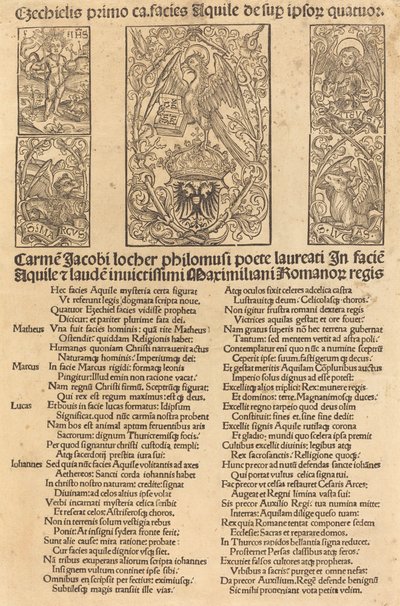 Ezechielis primo ca. facies Aquile de suꝑ ipsoꝝ quatuor.
IHS
S. MARCVS
S. LVCAS
Carmē Jacobi locher philomusi poete laureati In faciē
Aquile ⁊ laudē inuictissimi Maximiliani Romanoꝝ regis
Hec facies Aquile mysteria certa figurat
Ut referunt legis dogmata scripta noue.
Quatuor Ezechiel facies vidisse propheta
Dicitur: et pariter plurime facta dei.
Matheus
Una fuit facies hominis: quā rite Matheus
Ostendit: quiddam Religionis habet:
Humanas quoniam Christi narrauerit actus
Naturamqꝫ hominis: Imperiumqꝫ dei:
Marcus
In facie Marcus rigidi: formaqꝫ leonis
Pingitur: Illud enim non ratione vacat.
Nam regnū Christi firmū. Sceptrūqꝫ figurat:
Qui rex est regum maximus: est qꝫ deus.
Lucas
Et bouis in facie lucas formatus: Idipsum
Significat. quod nūc carmīa nostra probent
Nam bos est animal aptum feruentibus aris
Sacrorum: dignum Thuricremisqꝫ focis.
Per quod signantur christi custodia templi:
Atqꝫ sacerdotij prestita iura sui:
Iohannes
Sed quia nūc facies Aquile volitantis ad axes
Aethereos: Sancti corda iohannis habet
In christo nostro naturam: credite: signat
Diuinam: ad celos altius ipse volat
Verbi incarnati mysteria celica scribit
Et reserat celos: Astriferosqꝫ choros.
Non in terrenis solum vestigia rebus
Ponit: At insigni sydera fronte ferit.
Sunt alie cause: mira ratione: probate:
Cur facies aquile dignior vsqꝫ siet.
Nā tribus exuperans aliorum scripta iohannes
Insignem vultum continet ipse sibi.
Omnibus en scripsit per fectius: eximiusqꝫ.
Subtilesqꝫ magis transiit ille vias.
Atqꝫ oculos fixit celeres ad celica castra
Lustrauitqꝫ deum. Celicolasqꝫ choros.
Non igitur frustra romani dextera regis
Victrices aquilas gestat: et ore fouet:
Nam gratus superis nō hec terrena gubernat
Tantum: sed mentem vertit ad astra poli:
Contemplatur em̄ quo nūc a numīne sceptrū
Ceperit ipse suum. fastigerumqꝫ decus.
Et gestat meritis Aquilam Cōpluribus auctus
Imperio solus dignus ad esse potest:
Excellitqꝫ alios triplici: Rex: munere reges
Et dominos: terre. Magnanimosqꝫ duces.
Excellit regno tarpeio quod deus olim
Constituit: fines et. sine fine dedit:
Excellit signis Aquile rutilaqꝫ corona
Et gladio: mundi quo scelera ipsa premit
Cultibus excellit diuinis: legibus atqꝫ
Rex sacrosanctis. Religione quoqꝫ.
Hunc precor ad nutū defendas sancte iohānes
Qui portat vultus celica signa tui.
Fac precor vt celsas restauret Cesaris Arces;
Augeat et Regni limina vasta sui:
Sis precor Auxilio Regi: tua numina mitte:
Interea: Aquilam dilige quēso tuam:
Rex quia Romane tentat componere sedem
Ecclesie: Sacras et reparare domos.
In Thurcos rapidos bellantia signa reducet.
Prosternet Persas classibus atqꝫ feros.
Excutiet falsos cultores atqꝫ prophanas.
Vrbibus a fascis: purget et omne nefas:
Da precor Auxilium. Regē defende benignū
Sic mihi proueniant vota petita velim.